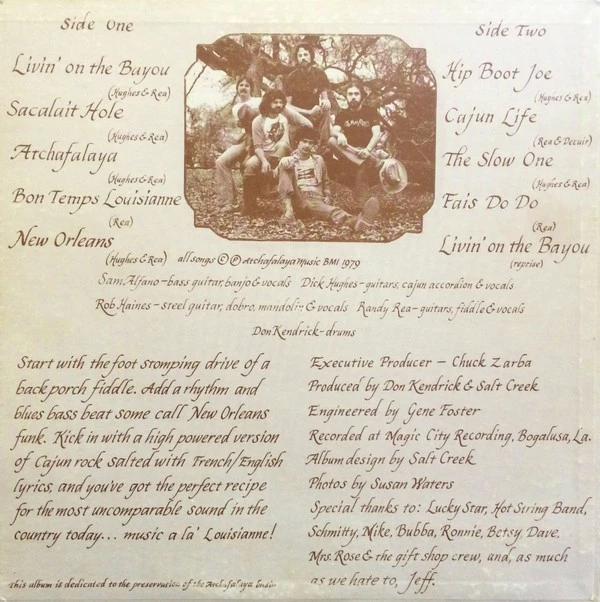 Side One
Livin' on the Bayou
(Hughes & Rea)
Sacalait Hole
(Hughes & Rea)
Atchafalaya
(Hughes & Rea)
Bon Temps Louisianne
(Rea)
New Orleans
(Hughes & Rea)
Side Two
Hip Boot Joe
(Hughes & Rea)
Cajun Life
(Rea & Decuir)
The Slow One
(Hughes & Rea)
Fais Do Do
(Rea)
Livin' on the Bayou
(reprise)
all songs © ℗ Atchafalaya Music BMI 1979
Sam Alfano – bass guitar, banjo & vocals Dick Hughes – guitars, cajun accordion & vocals
Rob Haines – steel guitar, dobro, mandolin & vocals Randy Rea – guitars, fiddle & vocals
Don Kendrick – drums
Start with the foot stomping drive of a
back porch fiddle. Add a rhythm and
blues bass beat some call New Orleans
funk. Kick in with a high powered version
of Cajun rock salted with French/English
lyrics, and you've got the perfect recipe
for the most uncomparable sound in the
country today... music a la' Louisianne!
This album is dedicated to the preservation of the Atchafalaya Basin
Executive Producer – Chuck Zarba
Produced by Don Kendrick & Salt Creek
Engineered by Gene Foster
Recorded at Magic City Recording, Bogalusa, La.
Album design by Salt Creek
Photos by Susan Waters
Special thanks to: Lucky Star, Hot String Band,
Schmitty, Mike, Bubba, Ronnie, Betsy, Dave,
Mrs. Rose & the gift shop crew, and, as much
as we hate to, Jeff.